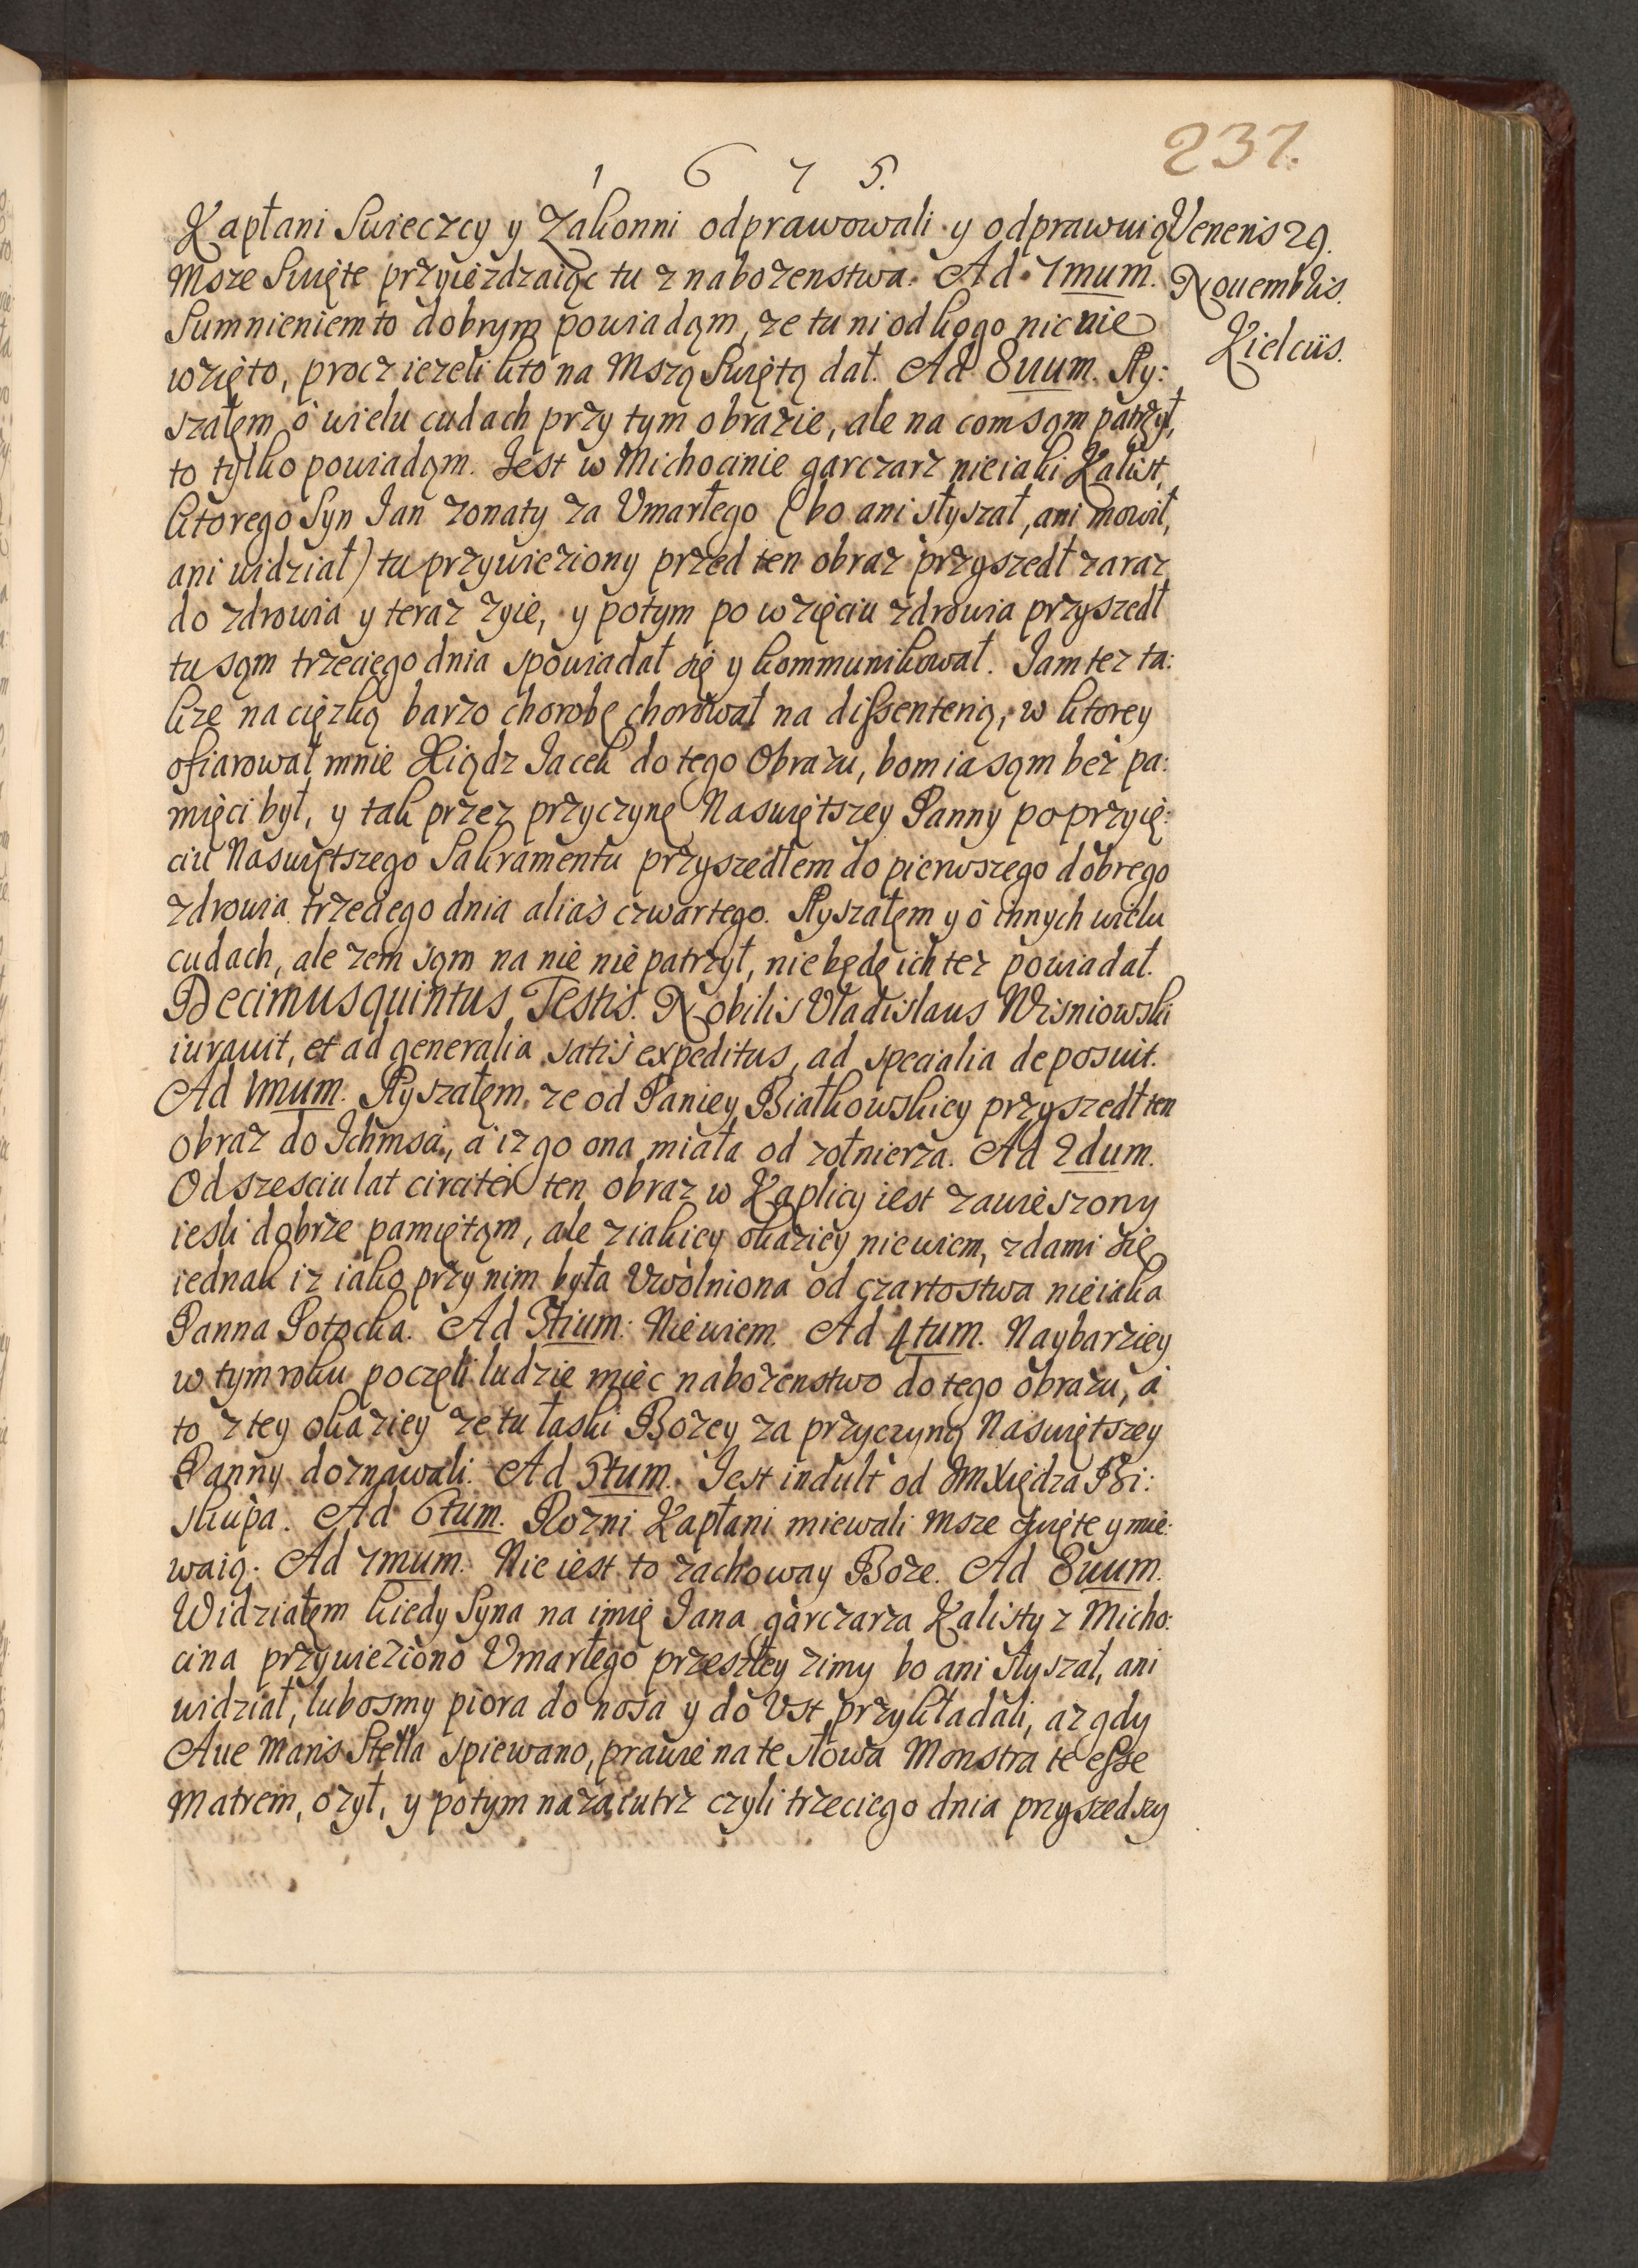 237.
1 6 7 5.
Kapłani Swieczcy y Zakonni odprawowali y odprawuią
Msze Swięte przyieżdzaiąc tu z nabozenstwa. Ad 7mum.
Sumnieniem to dobrym powiadąm, ze tu ni od kogo nic nie
wzięto, procz iezeli kto na Mszą Swiętą dał. Ad 8uum. Sły:
szałem o wielu cudach przy tym obrazie, ale na com sąm patrzył,
to tylko powiadąm. Iest w Michocinie garczarz nieiaki Kalist,
ktorego Syn Ian zonaty za Vmarłego (bo ani słyszał, ani mowił,
ani widział) tu przywieziony przed ten obraz przyszedł zaraz
do zdrowia y teraz zyie, y potym po wzięciu zdrowia przyszedł
tu sąm trzeciego dnia spowiadał się y kommunikował. Iam tez ta:
kze na cięzką barzo chorobę chorował na dissenterią, w ktorey
ofiarował mnie Xiądz Iacek do tego Obrazu, bom ia sąm bez pa:
mięci był, y tak przez przyczynę Naswiętszey Panny po przyię:
ciu Naswiętszego Sakramentu przyszedłem do pierwszego dobrego
zdrowia trzeciego dnia alias czwartego. Słyszałem y o innych wielu
cudach, ale zem sąm na nie nie patrzył, nie będę ich tez powiadał.
Decimusquintus Testis. Nobilis Vladislaus Wisniowski
iurauit, et ad generalia satis expeditus, ad specialia deposuit.
Ad 1mum. Słyszałem, ze od Paniey Białkowskiey przyszedł ten
obraz do Ichmsci, a iz go ona miała od zołnierza. Ad 2dum.
Od szesciu lat circiter ten obraz w Kaplicy iest zawieszony
iesli dobrze pamiętąm, ale z iakiey okaziey nie wiem, zda mi się
iednak iz iako przy nim była Vwolniona od czartostwa nieiaka
Panna Potocka. Ad 3tium: Nie wiem. Ad 4tum. Naybarziey
w tym roku poczęli ludzie miec nabozenstwo do tego obrazu, a
to z tey okaziey ze tu łaski Bozey za przyczyną Naswiętszey
Panny doznawali. Ad 5tum. Iest indult od JmXiędza Bi:
skupa. Ad 6tum. Rozni Kapłani miewali Msze Swięte y mie:
waią. Ad 7mum. Nie iest to zachoway Boze. Ad 8uum.
Widziałem kiedy Syna na imię Iana garczarza Kalisty z Micho:
cina przywieziono Vmarłego przeszłey zimy bo ani słyszał, ani
widział, lubosmy piora do nosa y do Vst przykładali, az gdy
Aue Maris Stella spiewano, prawie na te słowa Monstra te esse
Matrem, ozył, y potym nazaiutrz czyli trzeciego dnia przyszedszy
Veneris 29.
Nouembris.
Kielciis.